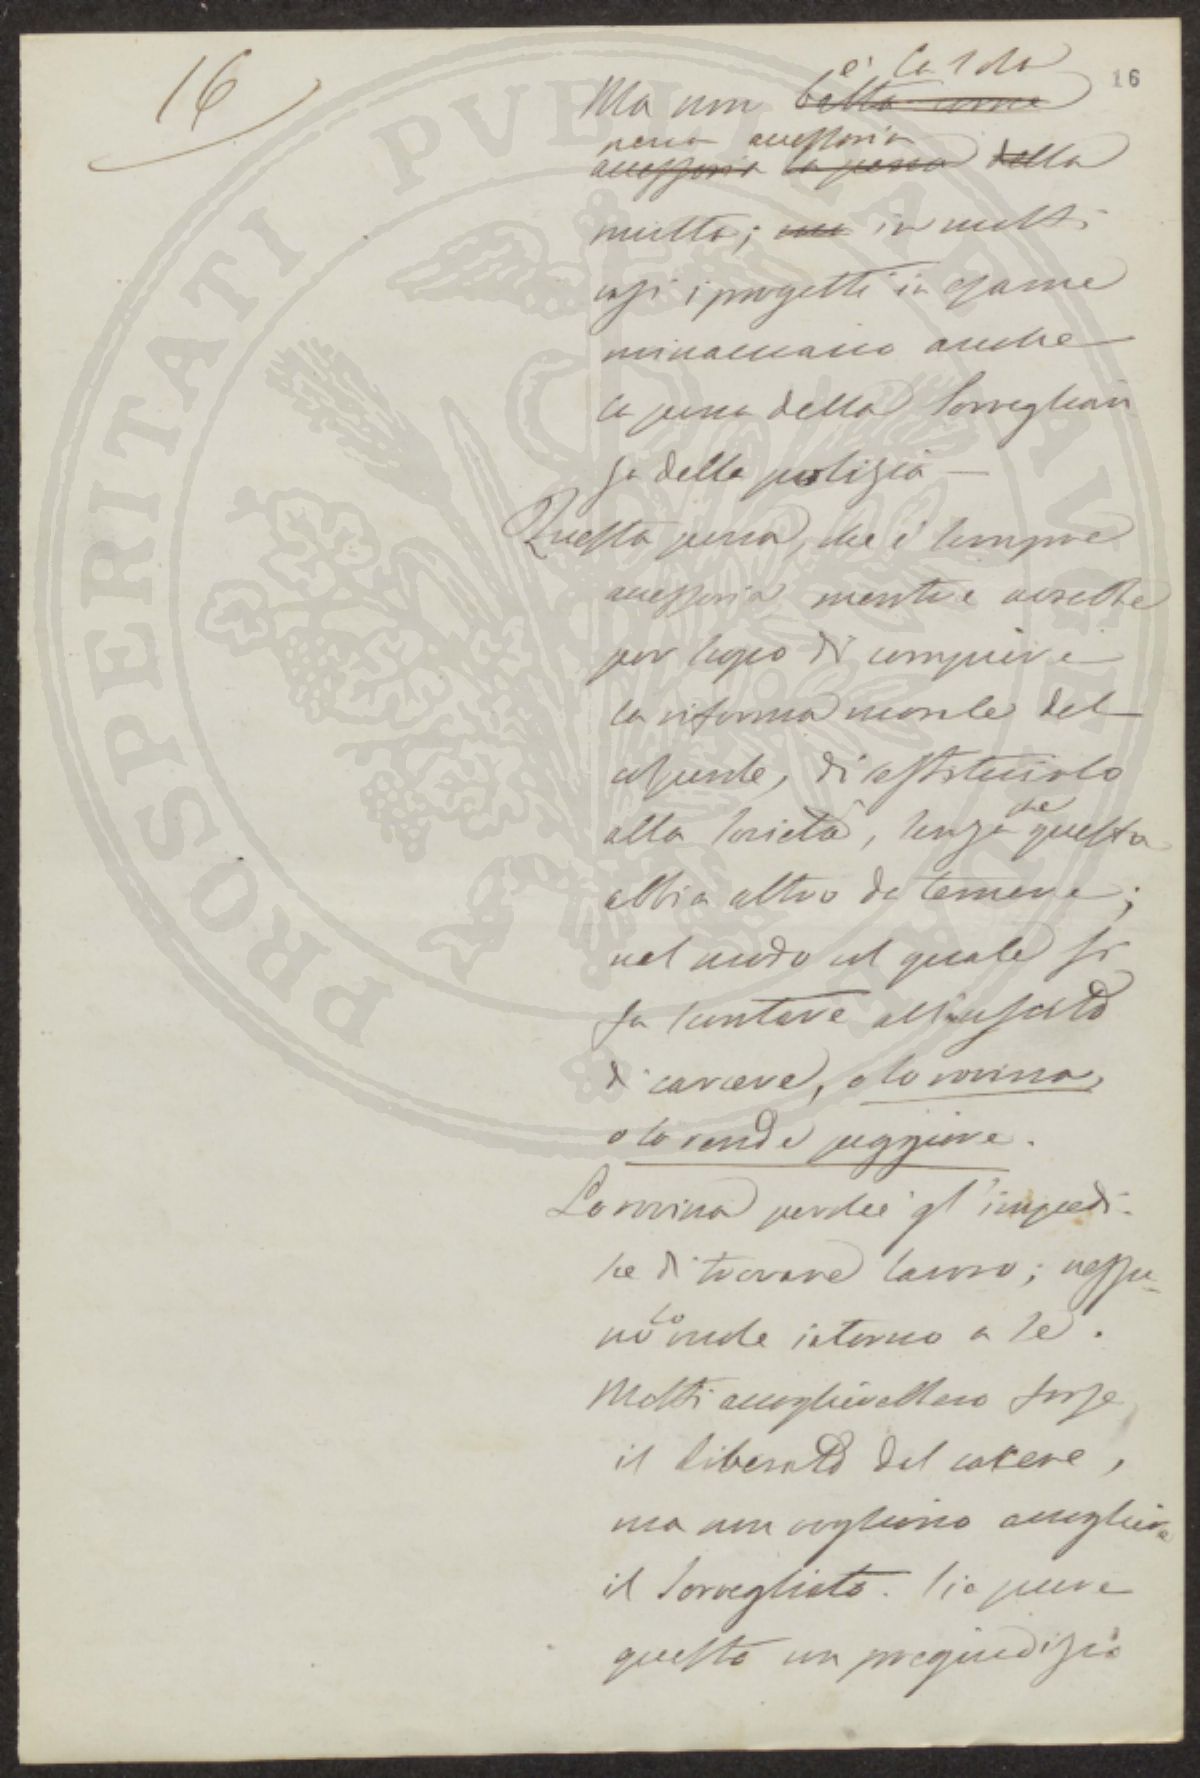 16
16
Ma non è la sola
pena accessoria della
multa; in molti
casi i progetti in esame
minacciano anche
la pena della Sorveglian
za della polizia —
Questa pena, che è sempre
accessoria mentre avrebbe
per scopo di compiere
la riforma morale del
colpevole, di restituirlo
alla società, senza che questa
abbia altro da temere;
nel modo col quale si
fa scontare all'uscito
di carcere, o lo rovina,
o lo rende peggiore.
Lo rovina perchè gl'impedi-
sce di trovare lavoro; nessu-
no lo vuole intorno a sè.
Molti accoglierebbero forse
il liberato dal carcere,
ma non vogliono accogliere
il Sorvegliato. Sia pure
questo un pregiudizio
PROSPERITATI PVBLICAE AVGENDAE